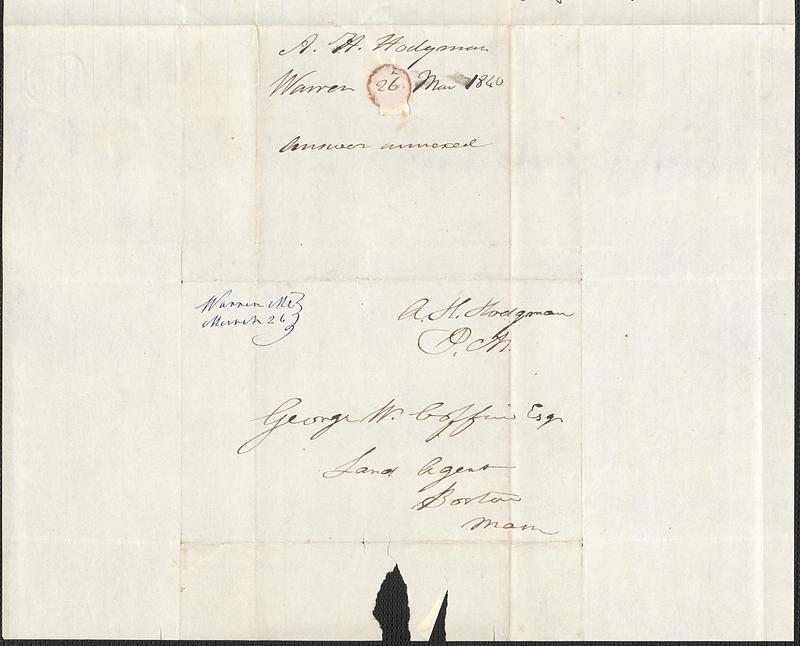 A. H. Hodgman
Warren 26 Mar 1840
Answer annexed
Warren Me
March 26
A. H. Hodgman
P. M.
George W. Coffin Esq
Land Agent
Boston
Mass